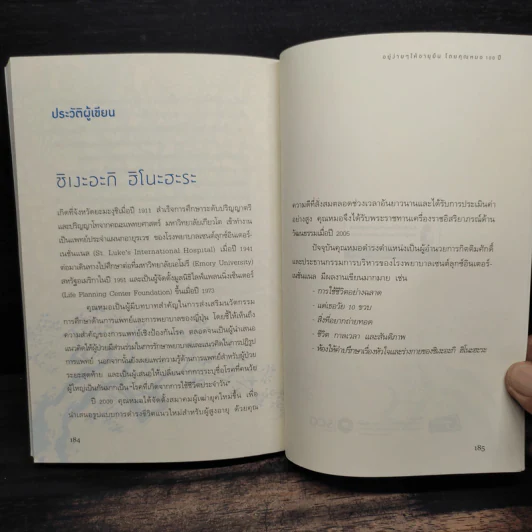 ประวัติผู้เขียน
ชิเงะอะกิ ฮิโนะฮะระ
เกิดที่จังหวัดยะมะงุชิเมื่อปี 1911 สำเร็จการศึกษาระดับปริญญาตรี
และปริญญาโทจากคณะแพทยศาสตร์ มหาวิทยาลัยเกียวโต เข้าทำงาน
เป็นแพทย์ประจำแผนกอายุรเวช ของโรงพยาบาลเซนต์ลุกซ์อินเตอร์-
เนชั่นแนล (St. Luke's International Hospital) เมื่อปี 1941
ต่อมาเดินทางไปศึกษาต่อที่มหาวิทยาลัยเอมอรี (Emory University)
สหรัฐอเมริกาในปี 1951 และเป็นผู้จัดตั้งมูลนิธิไลฟ์แพลนนิ่งเซ็นเตอร์
(Life Planning Center Foundation) ขึ้นเมื่อปี 1973
คุณหมอเป็นผู้มีบทบาทสำคัญในการส่งเสริมนวัตกรรม
การศึกษาด้านการแพทย์และการพยาบาลของญี่ปุ่น โดยชี้ให้เห็นถึง
ความสำคัญของการแพทย์เชิงป้องกันโรค ตลอดจนเป็นผู้นำเสนอ
แนวคิดให้ผู้ป่วยมีส่วนร่วมในการรักษาพยาบาลและแนวคิดในการปฏิรูป
การแพทย์ นอกจากนั้นยังเผยแพร่ความรู้ด้านการแพทย์สำหรับผู้ป่วย
ระยะสุดท้าย และเป็นผู้เสนอให้เปลี่ยนจากการระบุชื่อโรคที่คนวัย
ผู้ใหญ่เป็นกันมากเป็น "โรคที่เกิดจากการใช้ชีวิตประจำวัน"
ปี 2000 คุณหมอได้จัดตั้งสมาคมผู้เฒ่ายุคใหม่ขึ้น เพื่อ
นำเสนอรูปแบบการดำรงชีวิตแนวใหม่สำหรับผู้สูงอายุ ด้วยคุณ
184
อยู่ง่ายๆ ให้อายุยืน โดยคุณหมอ 100 ปี
ความดีที่สั่งสมตลอดช่วงเวลาอันยาวนานและได้รับการประเมินค่า
อย่างสูง คุณหมอจึงได้รับพระราชทานเครื่องราชอิสริยาภรณ์ด้าน
วัฒนธรรมเมื่อปี 2005
ปัจจุบันคุณหมอดำรงตำแหน่งเป็นผู้อำนวยการกิตติมศักดิ์
และประธานกรรมการบริหารของโรงพยาบาลเซนต์ลุกซ์อินเตอร์-
เนชั่นแนล มีผลงานเขียนมากมาย เช่น
- การใช้ชีวิตอย่างฉลาด
- แด่เธอวัย 10 ขวบ
- สิ่งที่อยากถ่ายทอด
- ชีวิต กาลเวลา และสันติภาพ
- ห้องให้คำปรึกษาเรื่องหัวใจและร่างกายของชิเงะอะกิ ฮิโนะฮะระ
185